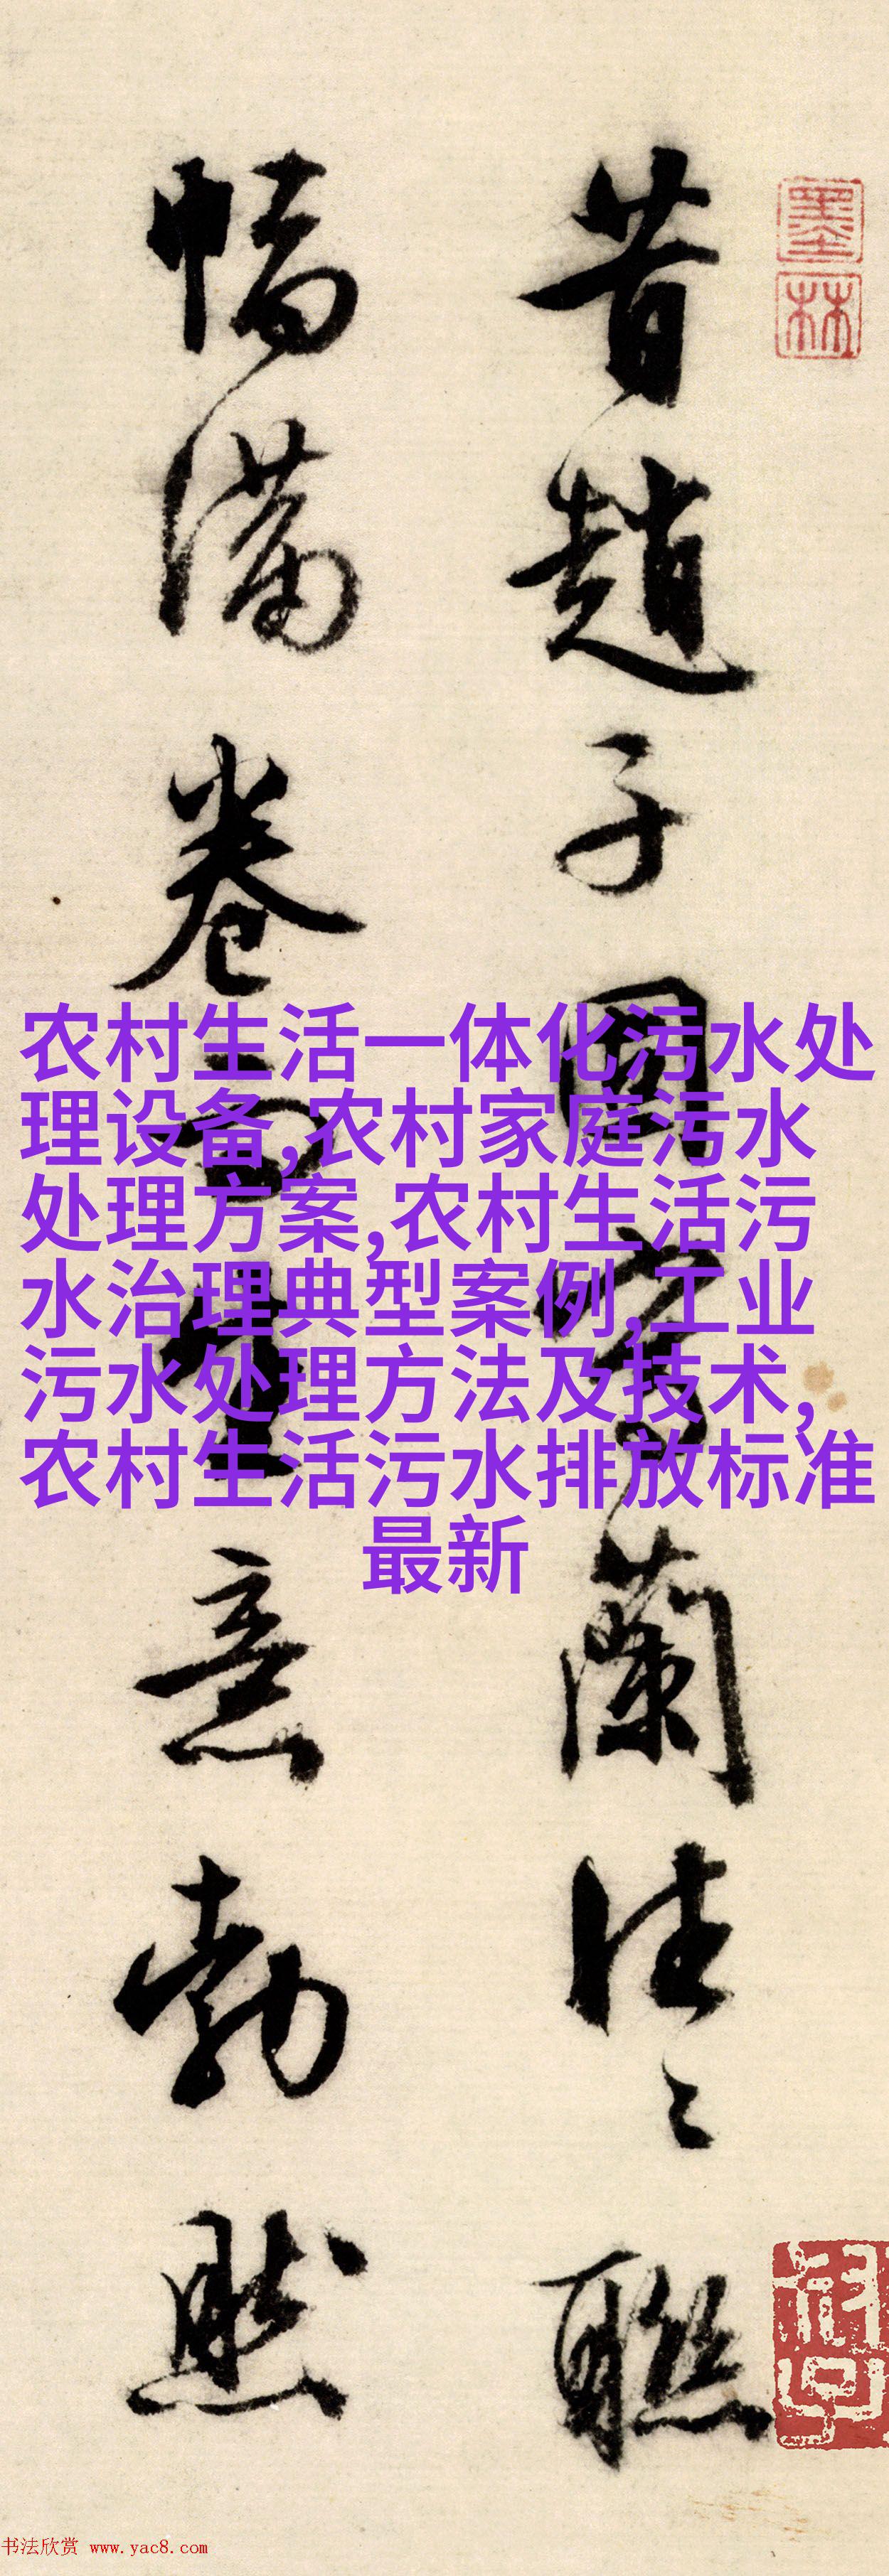 墨林
昔趙子固寫蘭往々聯
幅滿卷而生意勃然
农村生活一体化污水处
理设备,农村家庭污水
处理方案,农村生活污
水治理典型案例,工业
污水处理方法及技术,
农村生活污水排放标准
最新
书法欣赏 www.yac8.com